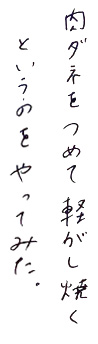 肉ダネをつめて軽がし焼く
というのをやってみた。